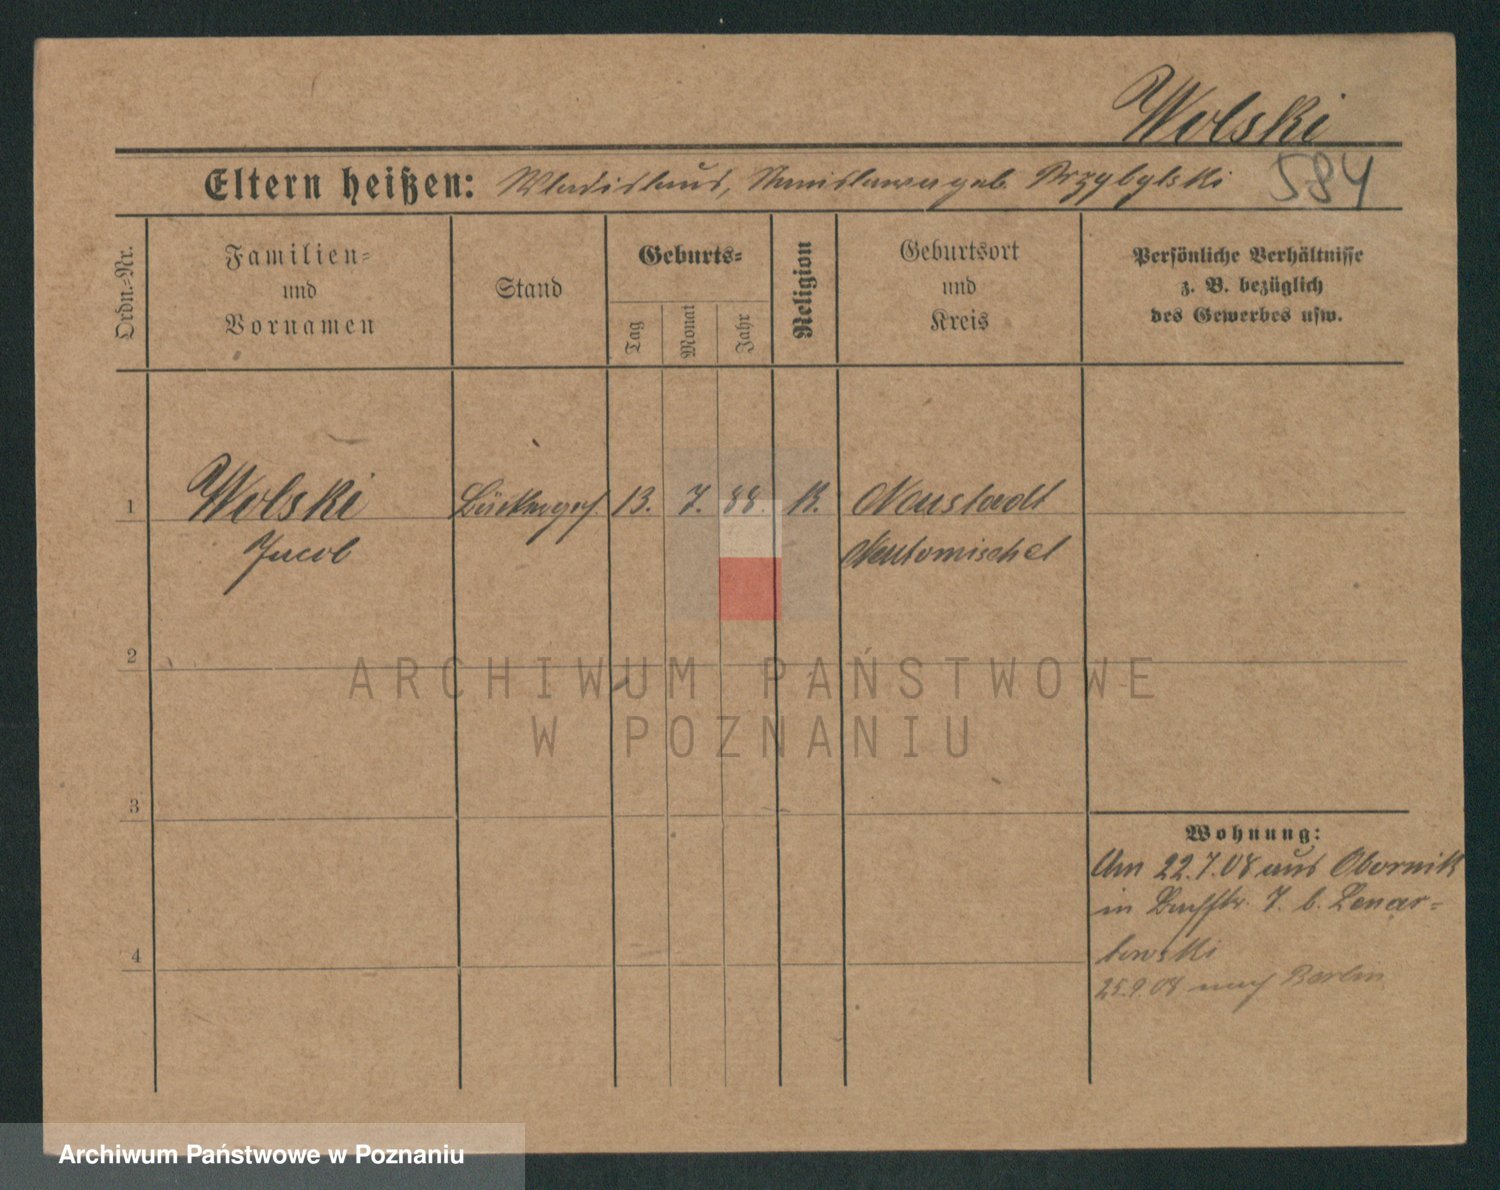 Wolski
Eltern heißen: Wladislaus, Stanislawa geb. Przybylski 584
Ordn.-Nr.
Familien-
und
Vornamen
Stand
Geburts-
Tag
Monat
Jahr
Religion
Geburtsort
und
Kreis
Persönliche Verhältnisse
z. B. bezüglich
des Gewerbes usw.
1 Wolski Bäckerges. 13. 7. 88. K. Neustadt
Jacob Neutomischel
2
ARCHIWUM PAŃSTWOWE
W POZNANIU
3
Wohnung:
Am 22.7.08 aus Obornik
in 7. b. Lenar-
towski
4
25.9.08 nach Berlin
Archiwum Państwowe w Poznaniu